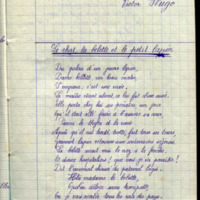 Victor Hugo
Le chat, la belette et le petit lapin
Du palais d'un jeune lapin,
Dame belette, un beau matin,
S'empara, c'est une rusée.
Le maître étant absent, ce lui fut chose aisée.
Elle porta chez lui ses pénates, un jour
Qu'il était allé faire à l'aurore sa cour
Parmi le thym et la rosée.
Après qu'il eut brouté, trotté, fait tous ses tours
Jeannot lapin retourne aux souterrains séjours.
La belette avait mis le nez à la fenêtre.
O dieux hospitaliers! que vois-je ici paraître!
Dit l'animal chassé du paternel logis.
Holà madame la belette,
Que l'on déloge sans trompette,